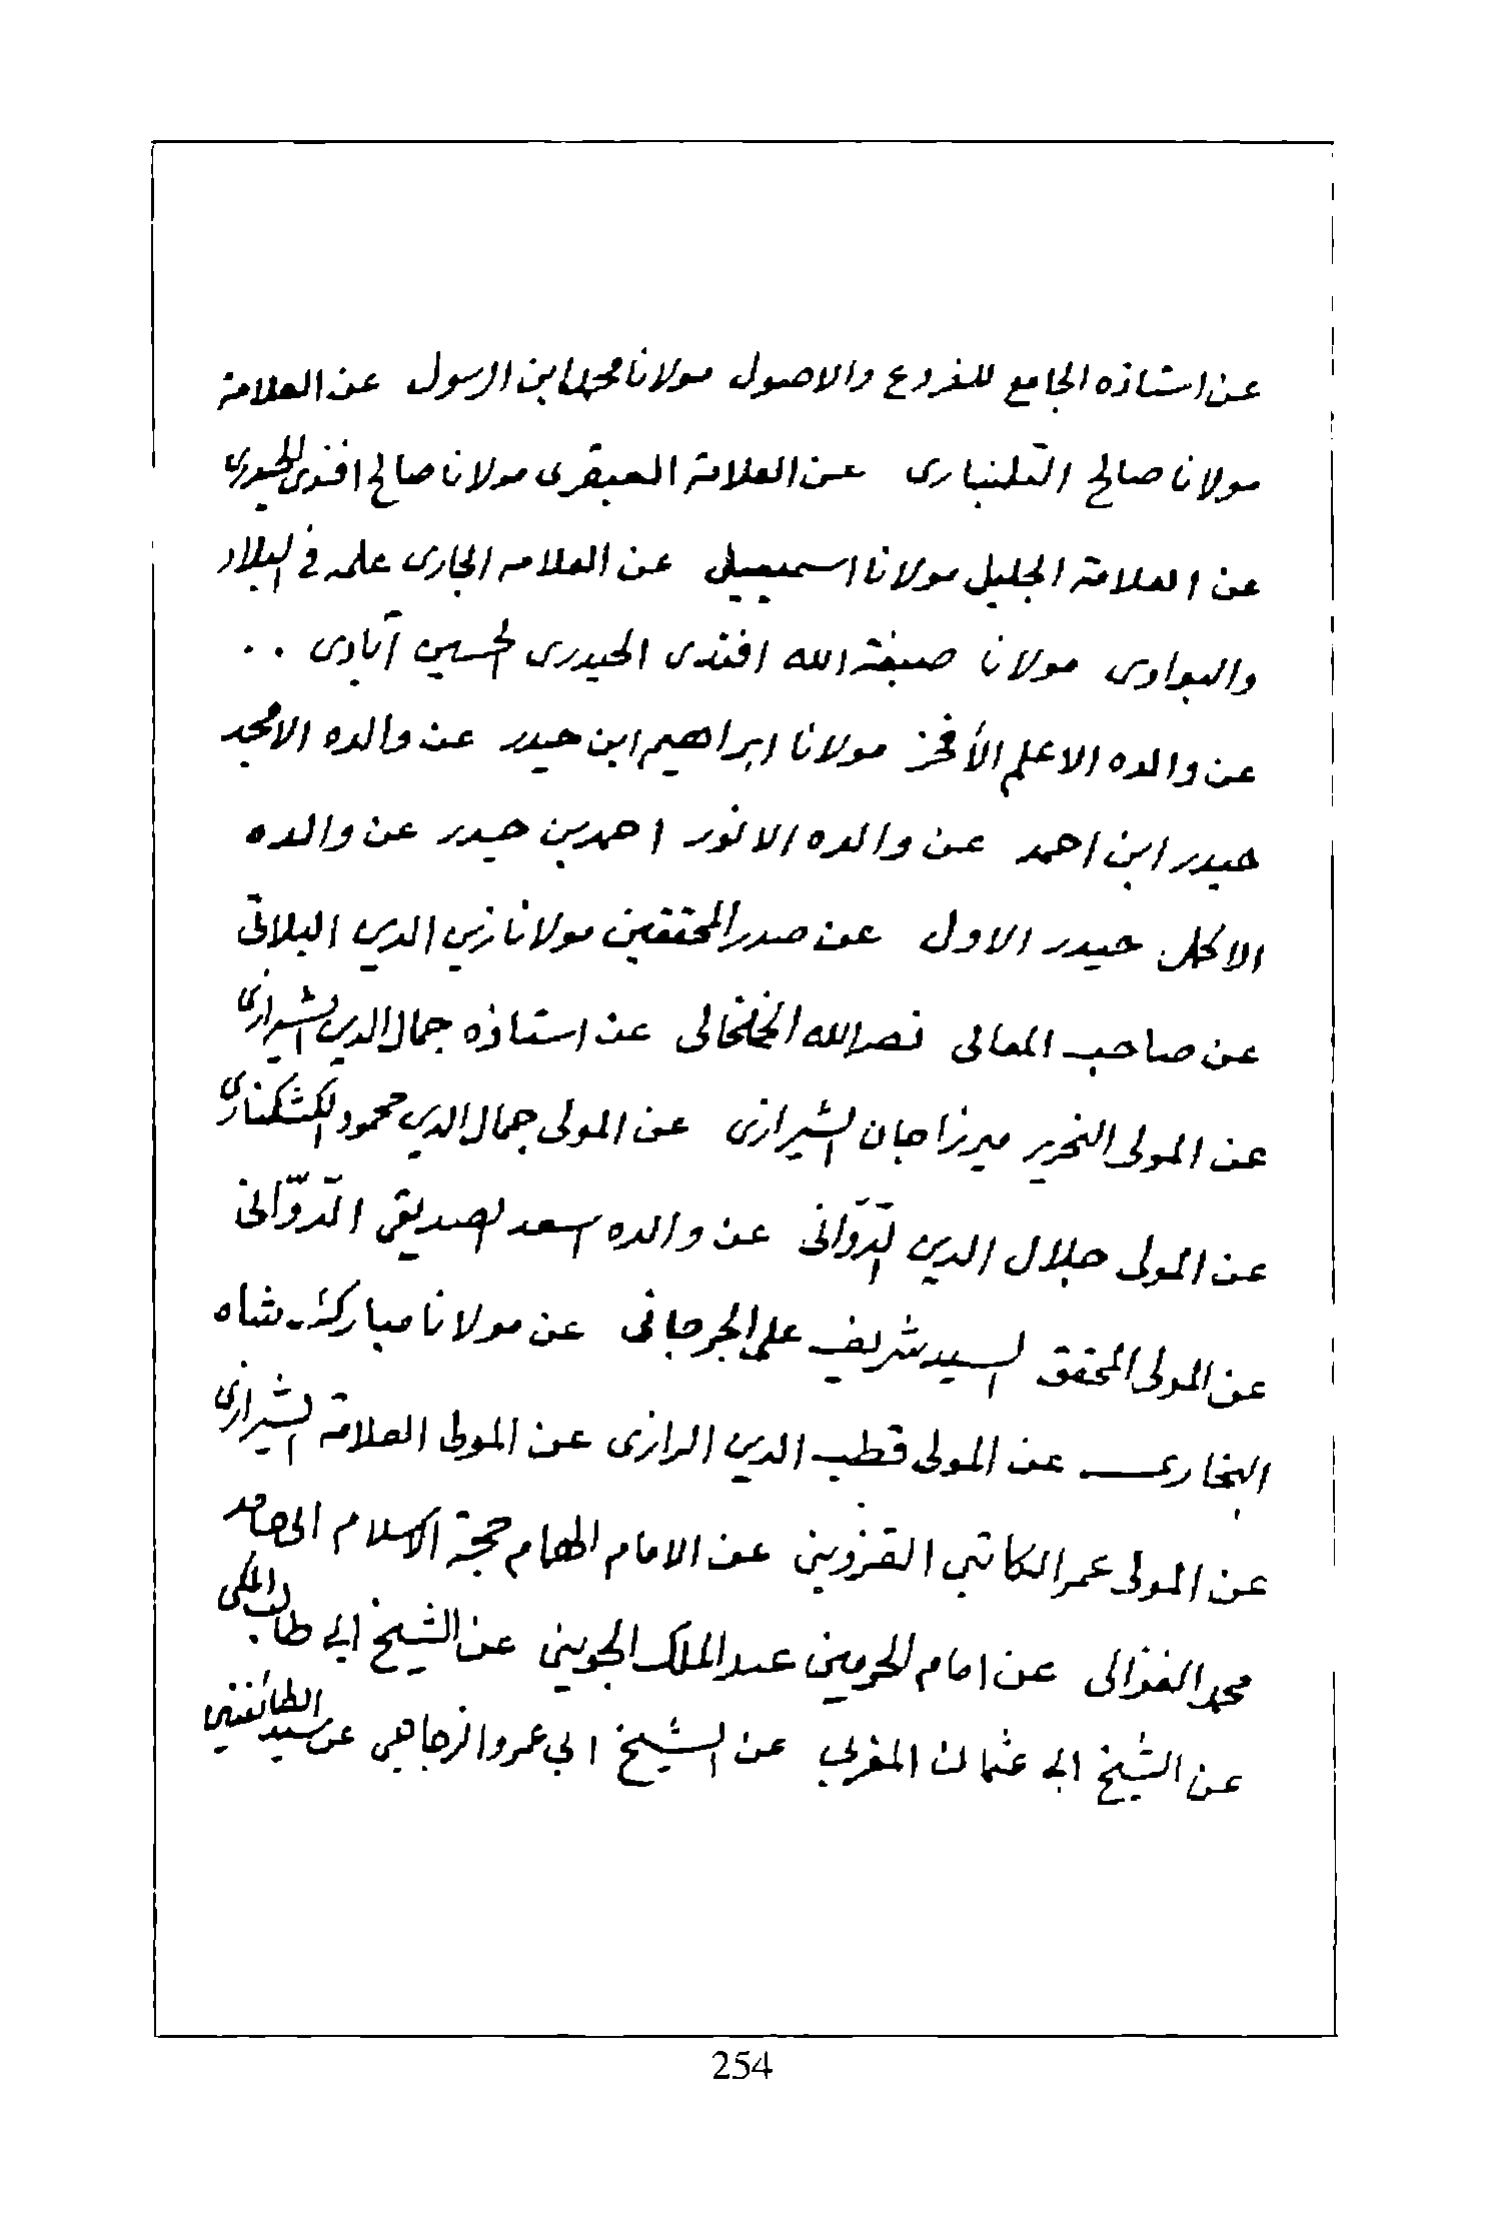 عن استاذه الجامع للفروع والاصول مولانا محمد ابن الرسول عن العلامة
مولانا صالح التلنبارى عن العلامة العبقرى مولانا صالح افندى الحيدرى
عن العلامة الجليل مولانا اسمعيل عن العلامه الجارى علمه فى البلاد
والبوادى مولانا صبغة الله افندى الحيدرى الحسين آبادى ..
عن والده الاعلم الأفخر مولانا ابراهيم ابن حيدر عن والده الامجد
حيدر ابن احمد عن والده الانور احمد بن حيدر عن والده
الاكمل حيدر الاول عن صدر المحققين مولانا زين الدين البلاتى
عن صاحب المعالى نصر الله الخلخالى عن استاذه جمال الدين الشيرازى
عن المولى النحرير ميرزا جان الشيرازى عن المولى جمال الدين محمود الكشكنارى
عن المولى جلال الدين الدَّوَّانى عن والده اسعد الصديقي الدَّوّانى
عن المولى المحقق السيد شريف على الجرجانى عن مولانا مباركـشاه
البخارى عن المولى قطب الدين الرازى عن المولى العلامة الشيرازى
عن المولى عمر الكاتبي القزويني عن الامام الهمام حجة الاسلام ابى حامد
محمد الغزالى عن امام الحرمين عبد الملك الجويني عن الشيخ ابى طالب المكى
عن الشيخ ابى عثمان المغربي عن الشيخ ابي عمرو الزجاجي عن سيد الطائفتين
254